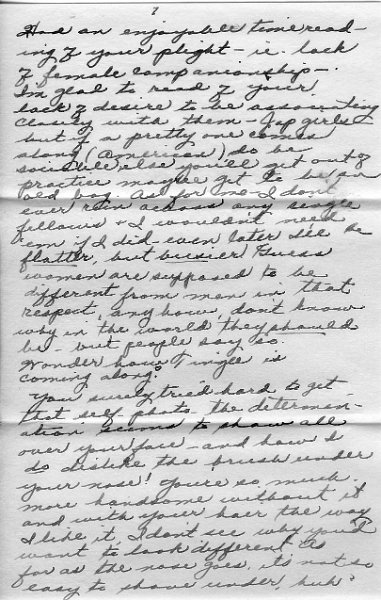 2
Had an enjoyable time read-
ing of your plight - ie. lack
of female companionship -.
I'm glad to read of your
lack of desire to be associating
closely with them - Jap girls
but if a pretty one comes
along (American) do be
sociable else you'll get out of
practice maybe get to be an
old bag. As for me - I don't
ever run across any single
fellows & I wouldn't need
'em if I did - even later I'll be
flatter, but busier! Guess
women are supposed to be
different from men in that
respect, anyhow, don't know
why in the world they should
be - but people say so.
Wonder how Tingle is
coming along?
You surely tried hard to get
that self photo - the determin-
ation seems to show all
over your face - and how I
do dislike the brush under
your nose! You're so much
more handsome without it
and with your hair the way
I like it, I don't see why you'd
want to look different. As
for as the nose goes, it's not so
easy to shave under, huh?